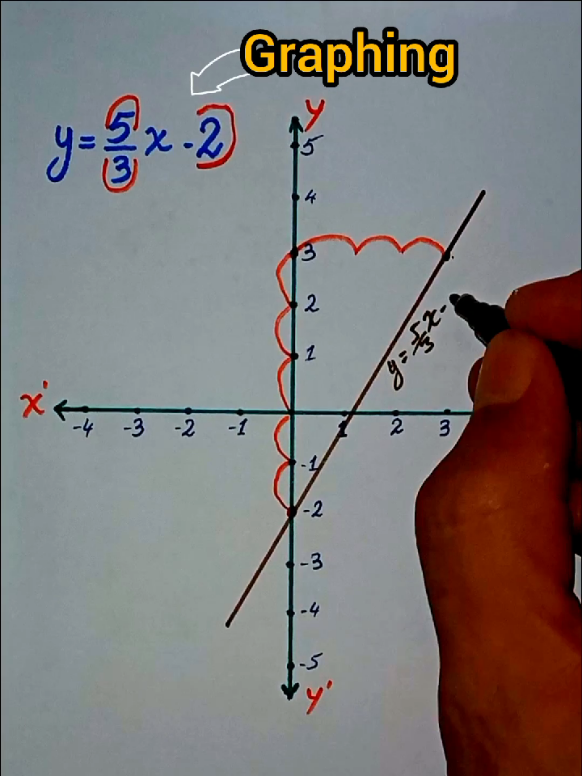 Graphing
y = 5/3 x - 2
y
5
4
3
2
1
x'
-4 -3 -2 -1 1 2 3
y = 5/3 x -
-1
-2
-3
-4
-5
y'